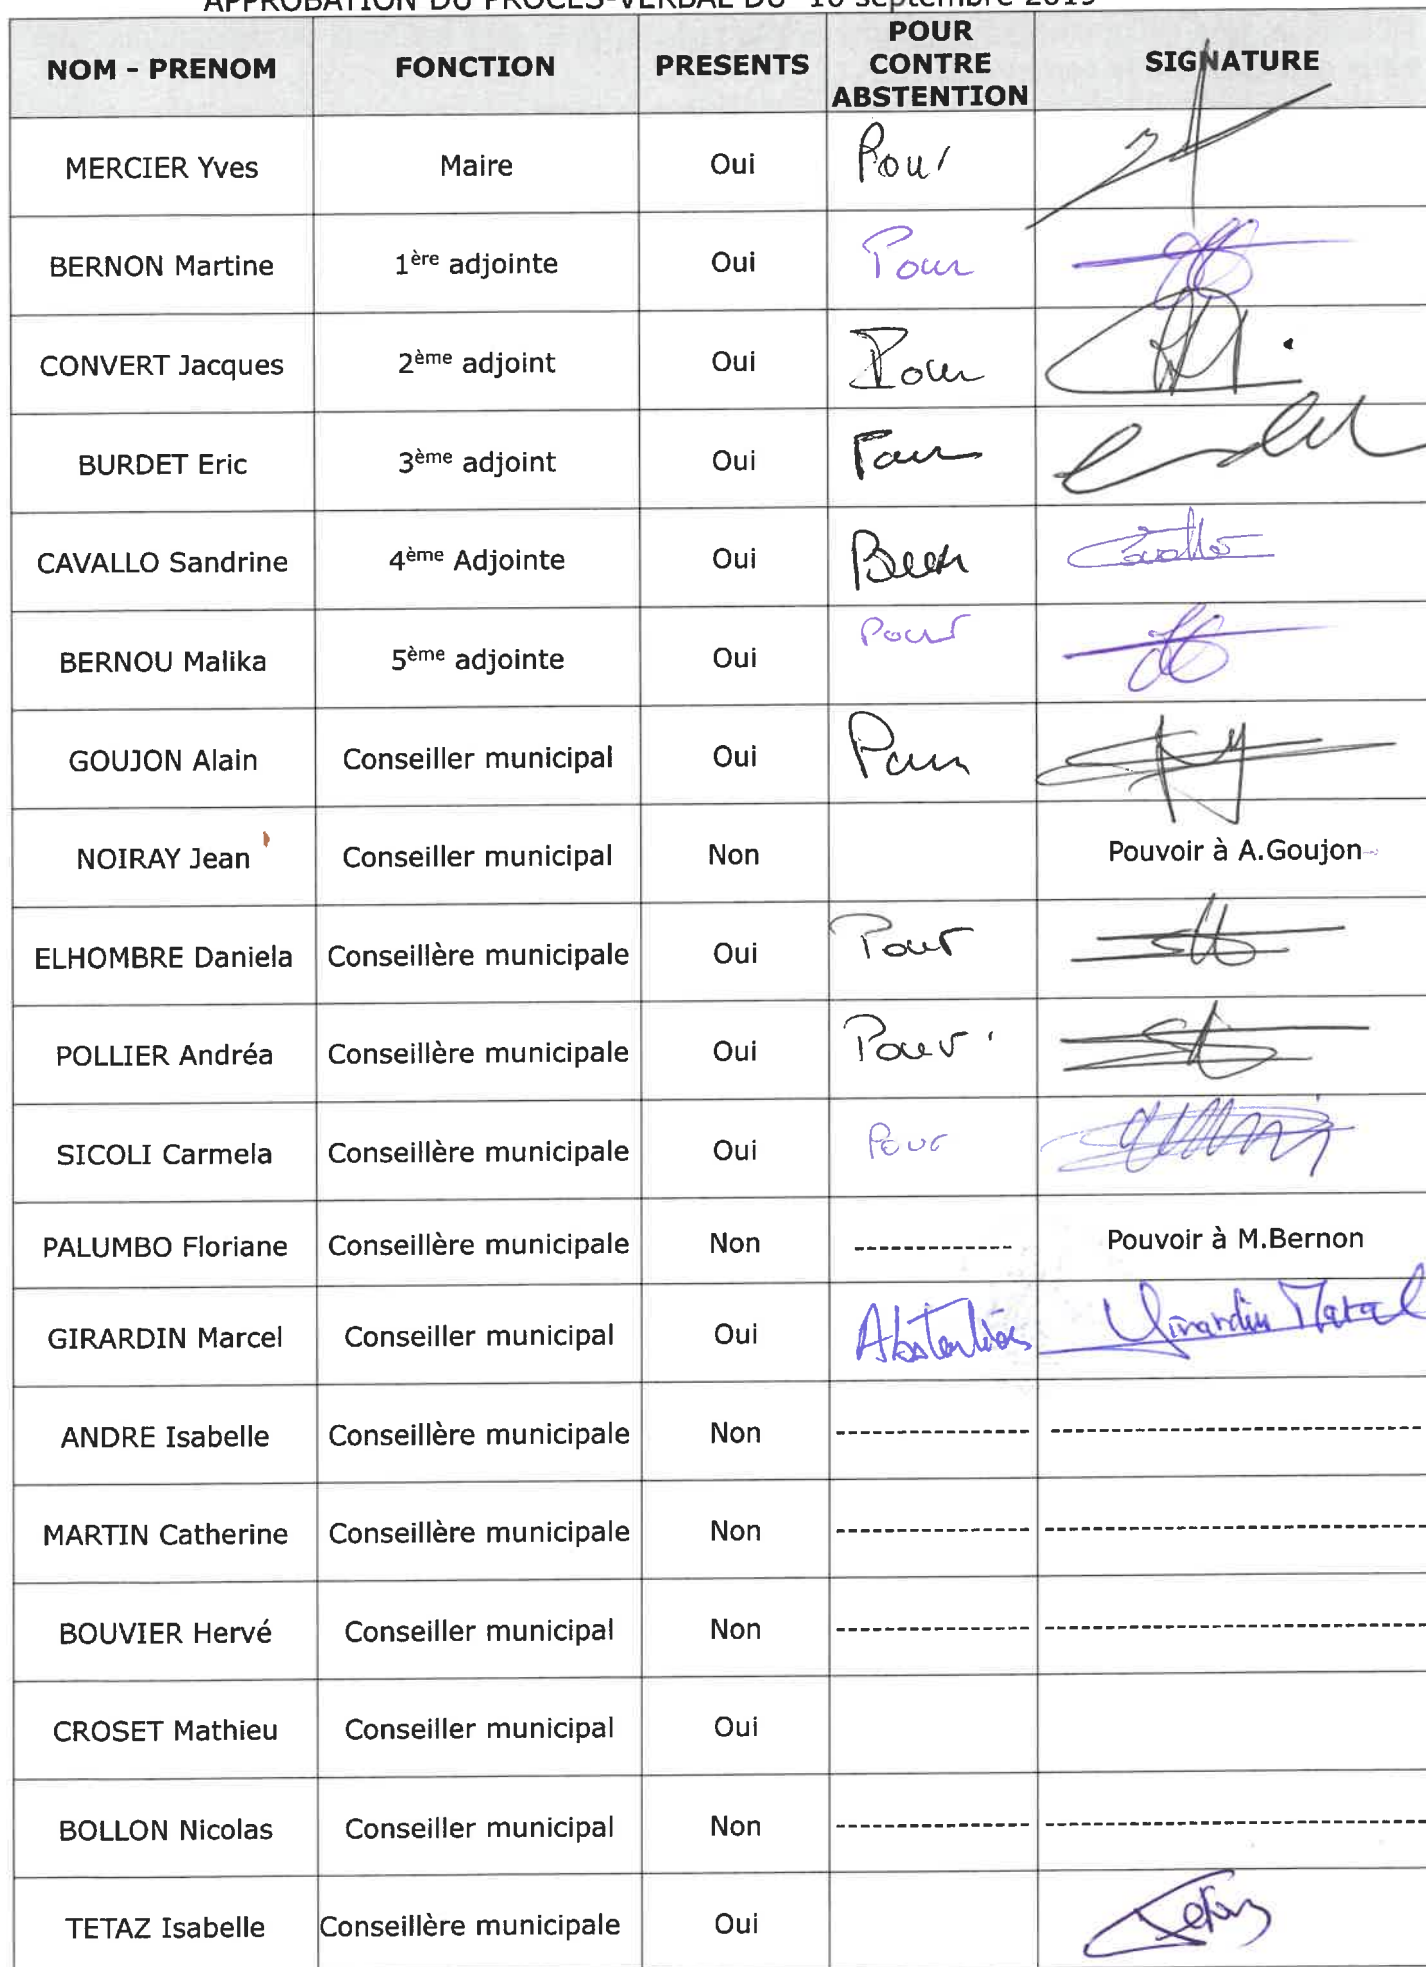 APPROBATION DU PROCES-VERBAL DU 16 septembre 2019
NOM - PRENOM FONCTION PRESENTS POUR CONTRE ABSTENTION SIGNATURE
MERCIER Yves Maire Oui Pour
BERNON Martine 1ère adjointe Oui Pour
CONVERT Jacques 2ème adjoint Oui Pour
BURDET Eric 3ème adjoint Oui Pour
CAVALLO Sandrine 4ème Adjointe Oui Cavallo
BERNOU Malika 5ème adjointe Oui Pour
GOUJON Alain Conseiller municipal Oui Pour
NOIRAY Jean Conseiller municipal Non Pouvoir à A.Goujon
ELHOMBRE Daniela Conseillère municipale Oui Pour
POLLIER Andréa Conseillère municipale Oui Pour
SICOLI Carmela Conseillère municipale Oui Pour
PALUMBO Floriane Conseillère municipale Non ------------- Pouvoir à M.Bernon
GIRARDIN Marcel Conseiller municipal Oui Abstention Girardin Marcel
ANDRE Isabelle Conseillère municipale Non
MARTIN Catherine Conseillère municipale Non
BOUVIER Hervé Conseiller municipal Non
CROSET Mathieu Conseiller municipal Oui
BOLLON Nicolas Conseiller municipal Non
TETAZ Isabelle Conseillère municipale Oui Tetaz